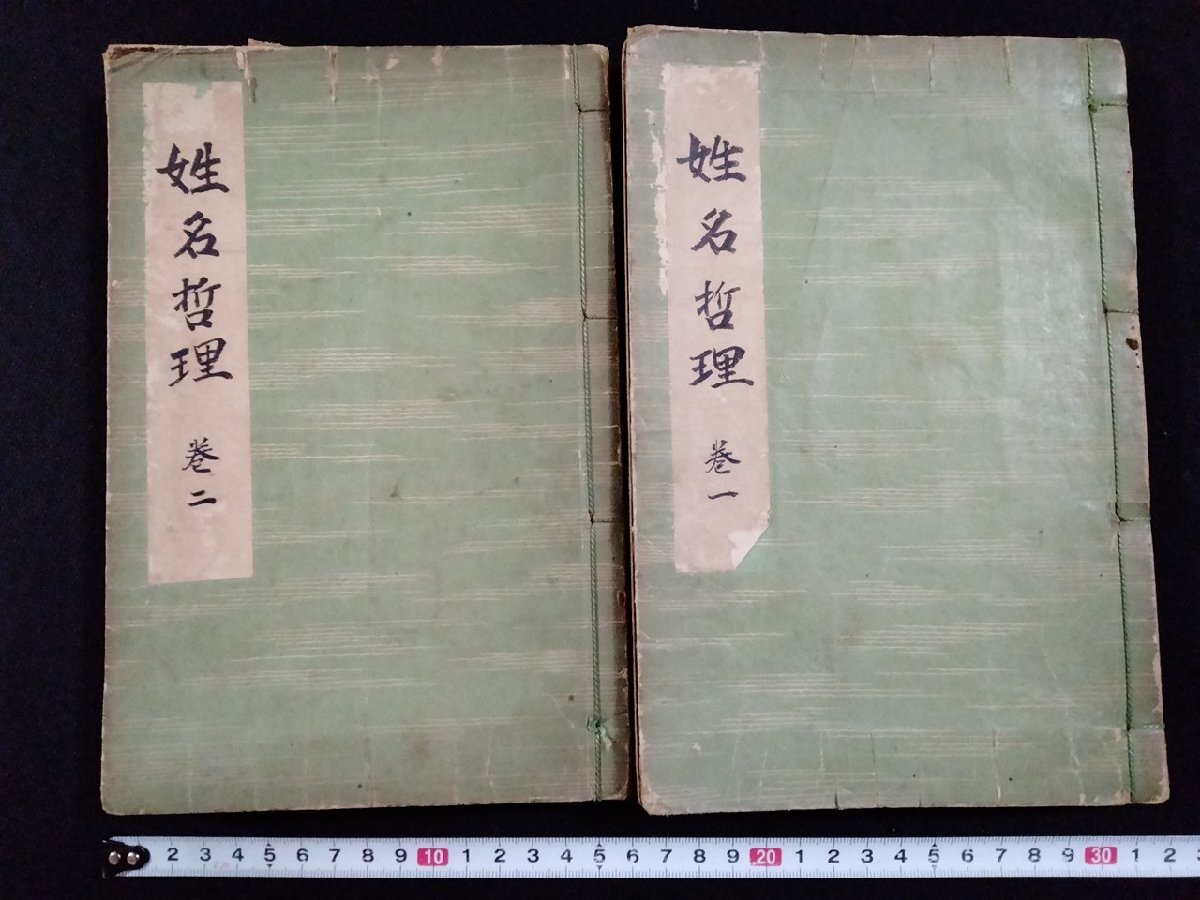 姓名哲理 巻一
姓名哲理 巻二
2 3 4 5 6 7 8 9 10 1 2 3 4 5 6 7 8 9 20 1 2 3 4 5 6 7 8 9 30 1 2